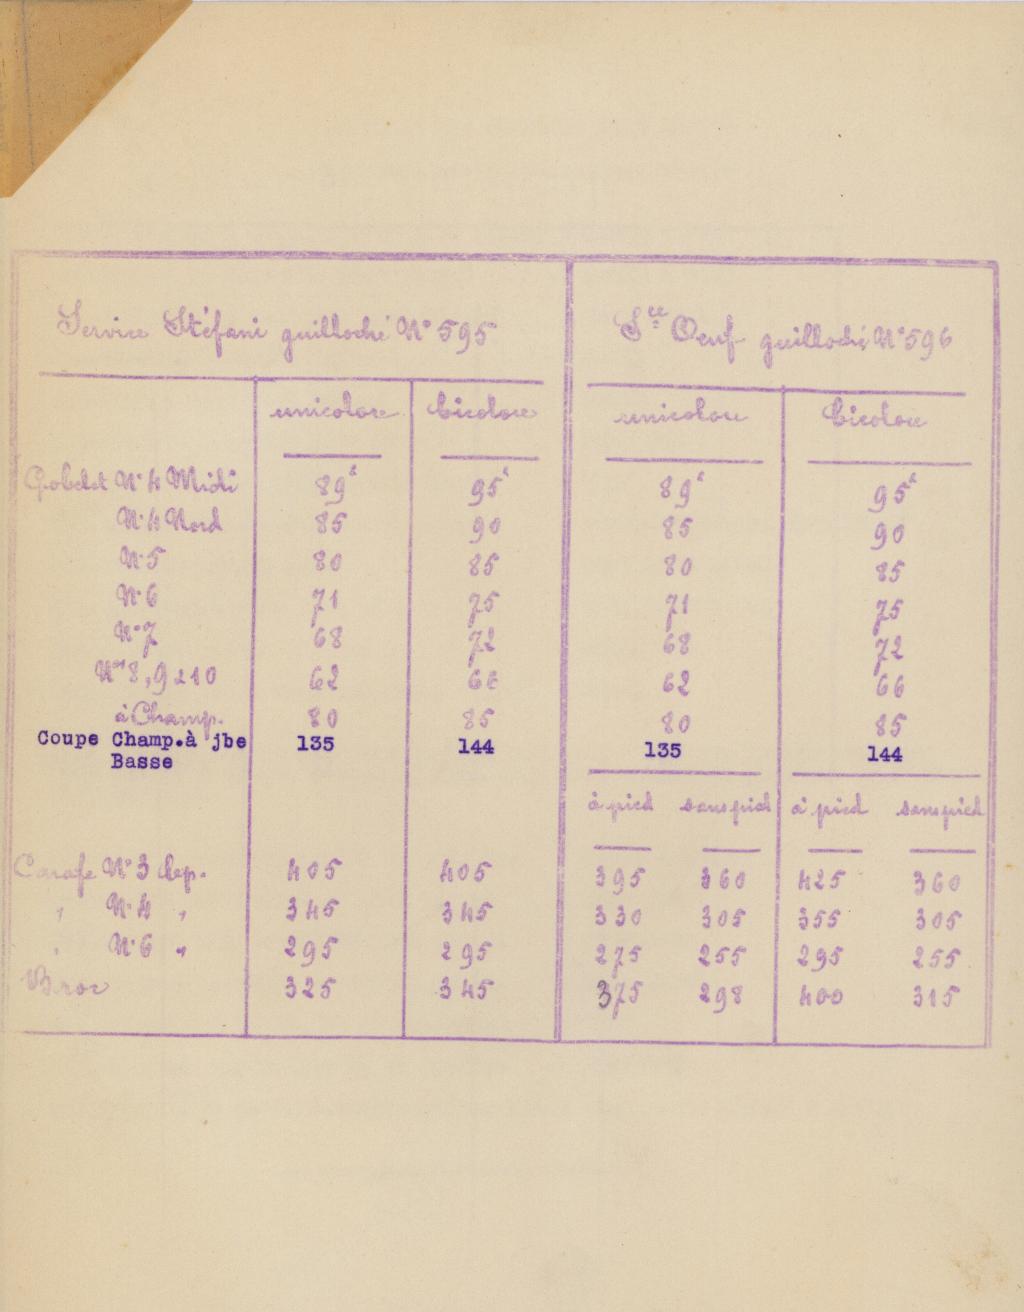 Service Stéfani guilloché N° 595 Sce Oeuf guilloché N° 596
unicolore bicolore unicolore bicolore
Gobelet N° 4 Midi 89 95 89 95
N° 4 Nord 85 90 85 90
N° 5 80 85 80 85
N° 6 71 75 71 75
N° 7 68 72 68 72
Nos 8, 9 & 10 62 66 62 66
à Champ. 80 85 80 85
Coupe Champ. à jbe 135 144 135 144
Basse
à pied sans pied à pied sans pied
Carafe N° 3 dép. 405 405 395 360 425 360
" N° 4 " 345 345 330 305 355 305
" N° 6 " 295 295 275 255 295 255
Broc 325 345 375 298 400 315